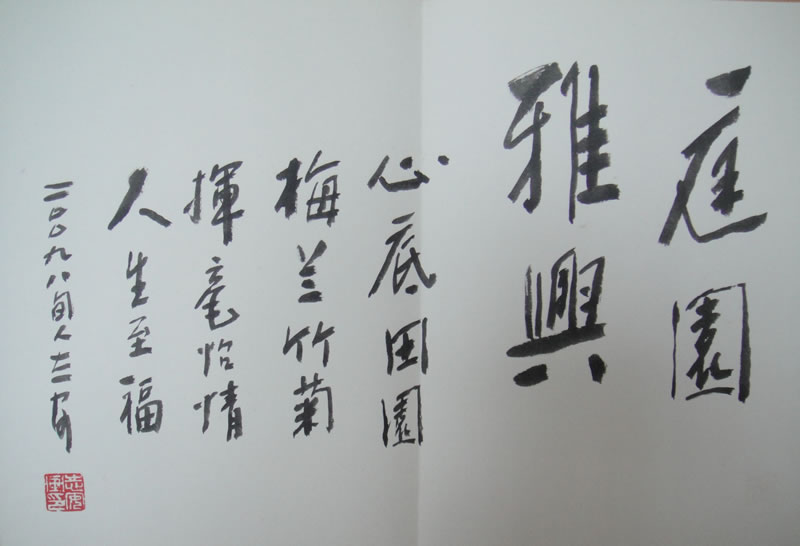 庭園
雅興
心底田園
梅兰竹菊
揮毫怡情
人生至福
二〇〇九八旬人